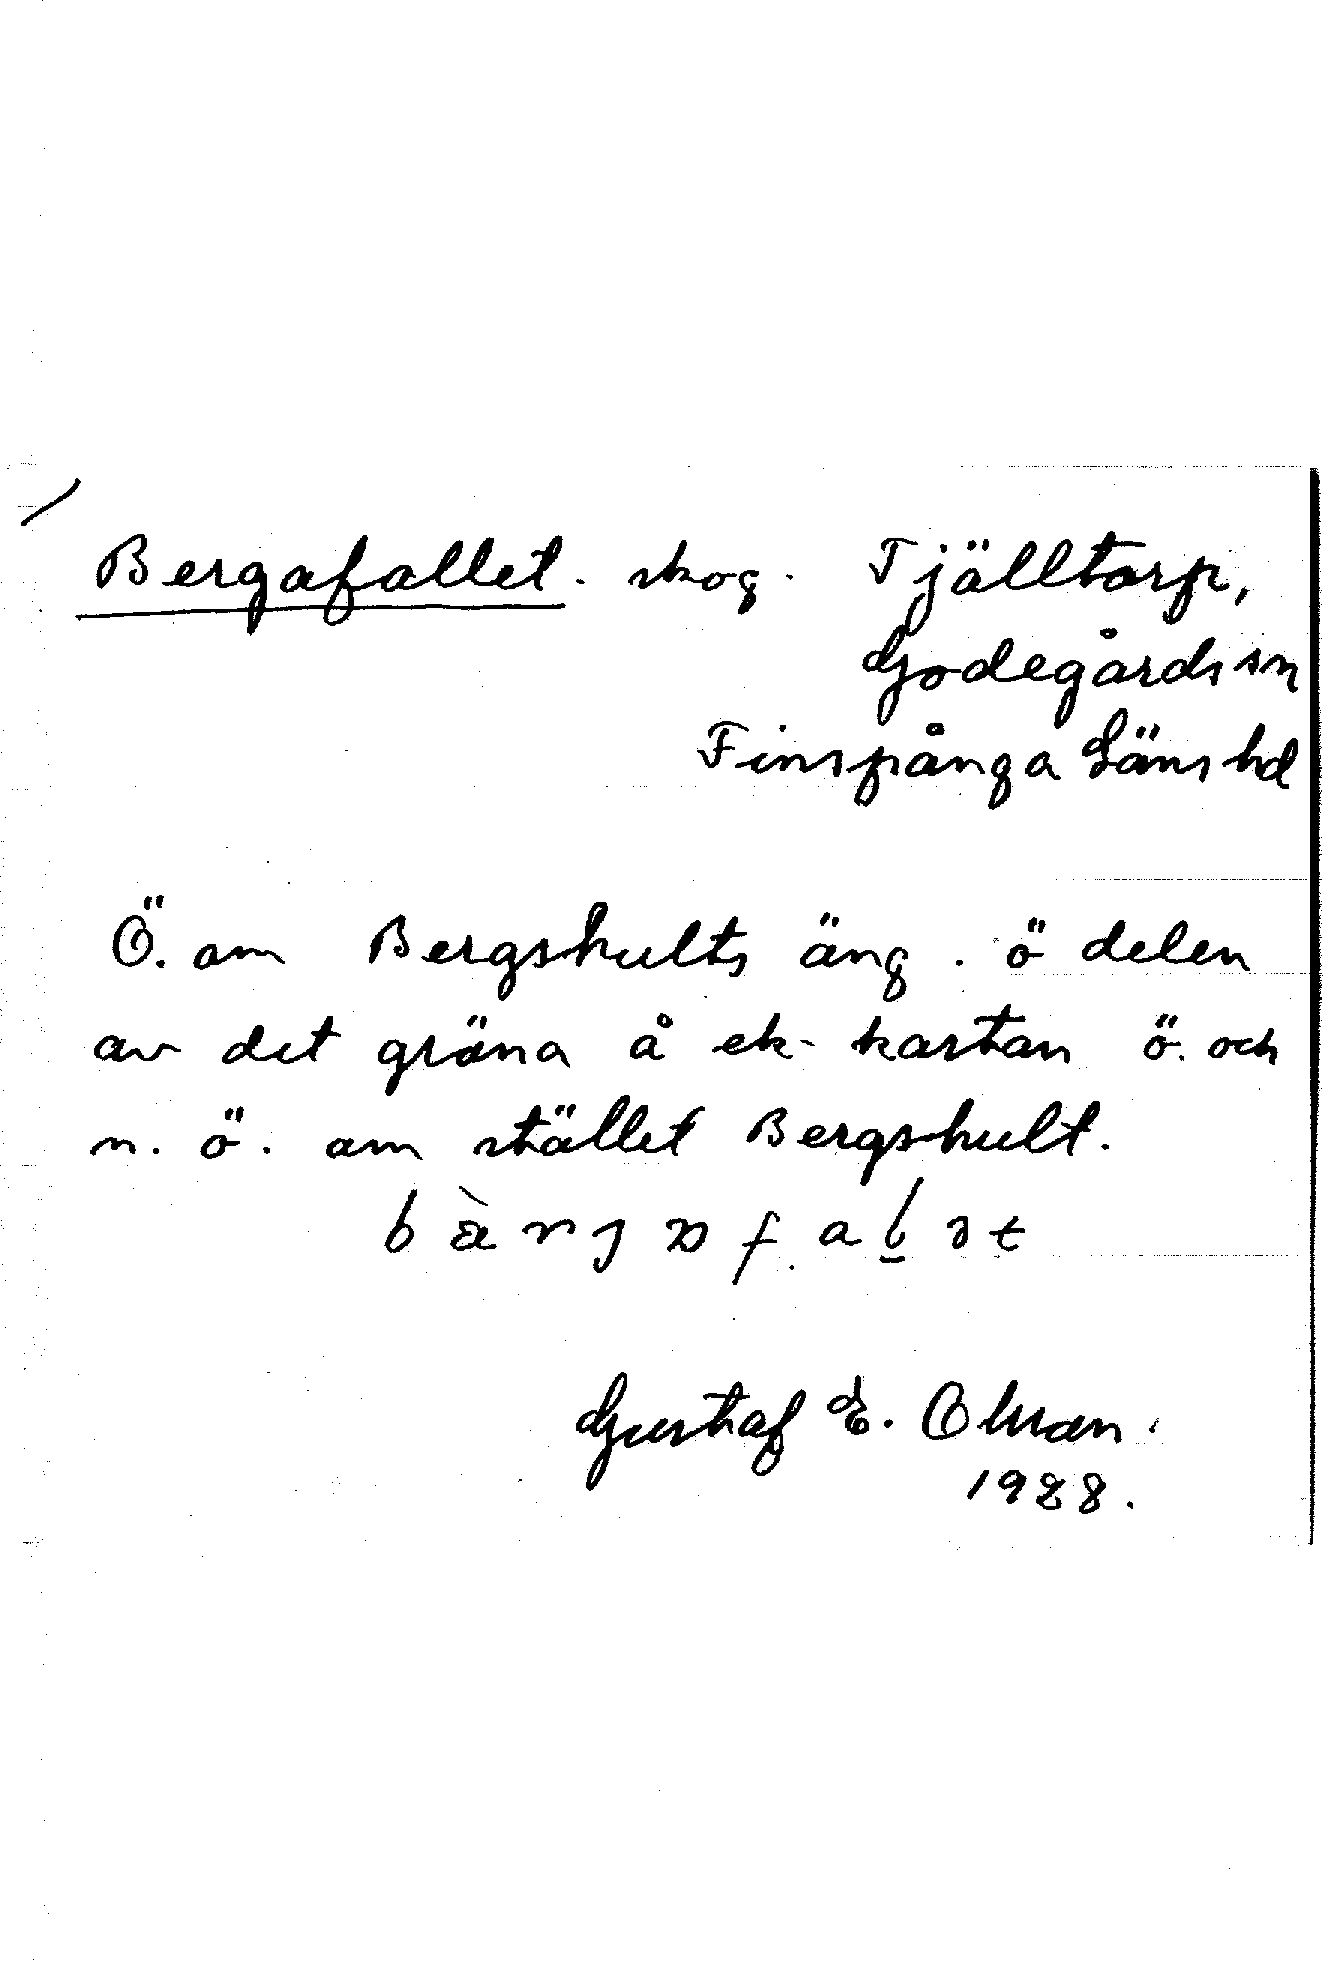 Bergafallet. skog. Tjälltorp,
Godegårds sn
Finspånga Läns hd
Ö. om Bergshults äng. ö delen
av det gröna å ek-kartan ö. och
n. ö. om stället Bergshult.
Gustaf E. Olsson.
1988.